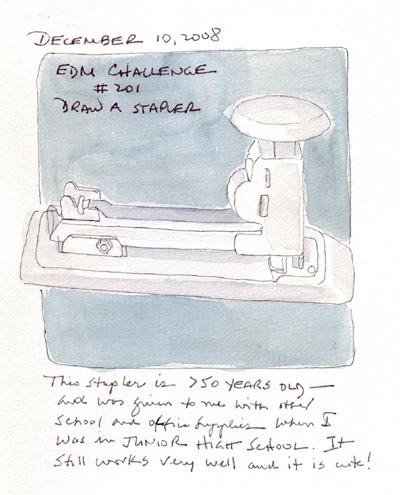 DECEMBER 10, 2008
EDM CHALLENGE
#201
DRAW A STAPLER
This stapler is >50 YEARS OLD —
and was given to me with other
school and office supplies when I
was in JUNIOR HIGH SCHOOL. It
still works very well and it is cute!